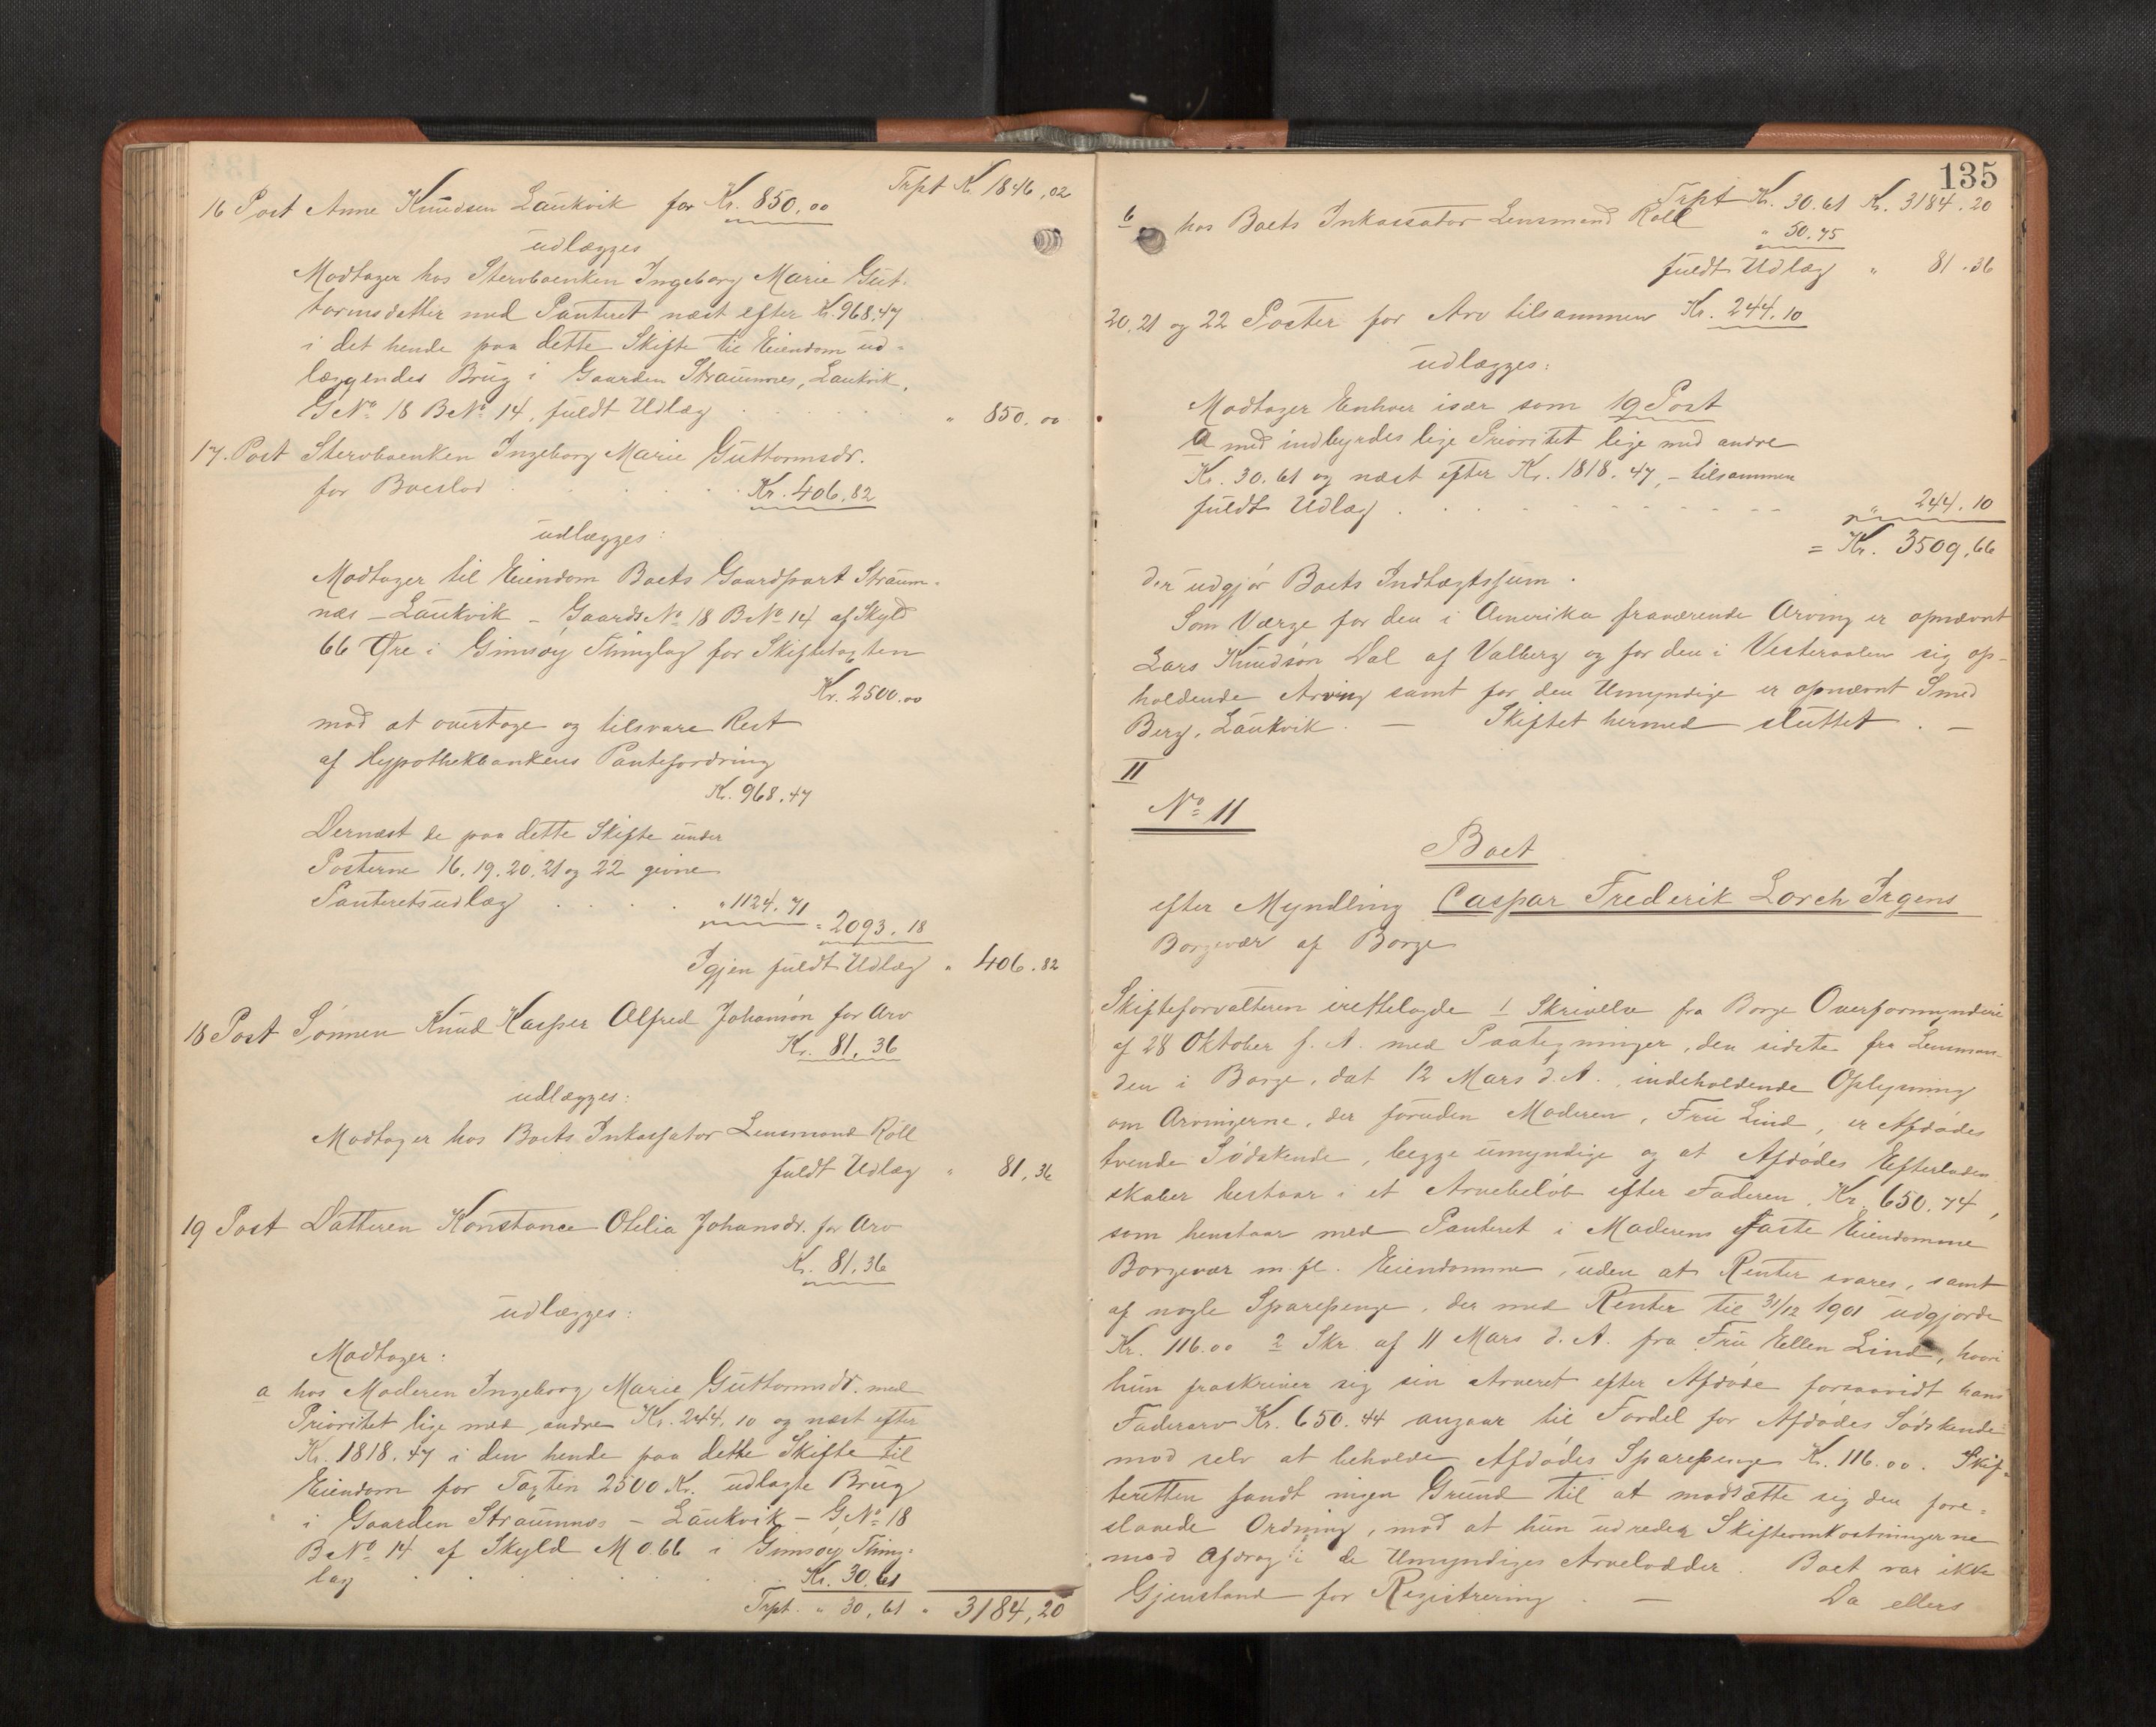 Trpt Kr. 1846,02
16 Post Anne Knudsen Laukvik for Kr. 850,00
udlægges
Modtager hos Stervboenken Ingeborg Marie Gut-
tormsdatter med Panteret næst efter Kr. 968,47
i det hende paa dette Skifte til Eiendom ud-
læggendes Brug i Gaarden Straumnes, Laukvik,
G.No 18 B.No 14, fuldt Udlæg " 850,00
17. Post Stervboenken Ingeborg Marie Guttormsdr.
for Boeslod Kr. 406,82
udlægges:
Modtager til Eiendom Boets Gaardpart Straum-
næs - Laukvik - Gaards No 18 B.No 14 af Skyld
66 Øre i Gimsøy Thinglag for Skiftetagten
Kr. 2500.00
mod at overtage og tilsvare Rest
af Hypothekbankens Pantefordring
Kr. 968,47
Dernæst de paa dette Skifte under
Posterne 16, 19, 20, 21 og 22 givne
Panteretsudlæg " 1124,71
= 2093,18
Igjen fuldt Udlæg " 406,82
18 Post Sønnen Knud Kasper Alfred Johansøn for Arv
Kr. 81,36
udlægges:
Modtager hos Boets Inkassator Lensmand Röll
fuldt Udlæg " 81,36
19 Post Datteren Konstance Otilia Johansdr. for Arv
Kr. 81,36
udlægges:
Modtager:
a hos Moderen Ingeborg Marie Guttormsdr. med
Prioritet lige med andre Kr. 244,10 og næst efter
Kr. 1818,47 i den hende paa dette Skifte til
Eiendom for Tagten 2500 Kr. udlagte Brug
i Gaarden Straumnæs - Laukvik - G.No 18
B.No 14 af Skyld M 0.66 i Gimsøy Thing-
lag Kr. 30,61
Trpt. " 30,61 " 3184,20
135
Trpt Kr. 30.61 Kr. 3184.20
b hos Boets Inkassator Lensmand Röll " 50,75
fuldt Udlæg " 81.36
20, 21 og 22 Poster for Arv tilsammen Kr. 244,10
udlægges:
Modtager Enhver især som 19 Post
a med indbyrdes lige Prioritet lige med andre
Kr. 30,61 og næst efter Kr. 1818,47, - tilsammen
fuldt Udlæg " 244,10
= Kr. 3509,66
der udgjør Boets Indtægtssum.
Som Værge for den i Amerika fraværende Arving er opnævnt
Lars Knudsøn Dal af Valberg og for den i Vesteraalen sig op-
holdende Arving samt for den Umyndige er opnævnt Smed
Berg, Laukvik. - Skiftet hermed sluttet. -
II
No 11
Boet
efter Myndling Caspar Frederik Lorch Irgens
Borgevær af Borge
Skifteforvalteren irettelagde 1 Skrivelse fra Borge Overformynderi
af 28 Oktober f. A. med Paategninger, den sidste fra Lensman-
den i Borge, dat 12 Mars d. A., indeholdende Oplysning
om Arvingerne, der foruden Moderen, Fru Lind, er Afdødes
tvende Sødskende, begge umyndige og at Afdødes Efterladen-
skaber bestaar i et Arvebeløb efter Faderen, Kr. 650.74,
som henstaar med Panteret i Moderens faste Eiendomme
Borgevær m. fl. Eiendomme, uden at Renter svares, samt
af nogle Sparepenge, der med Renter til 31/12 1901 udgjorde
Kr. 116.00 2 Skr. af 11 Mars d. A. fra Fru Ellen Lind, hvori
hun fraskriver sig sin Arveret efter Afdøde forsaavidt hans
Faderarv Kr. 650.44 angaar til Fordel for Afdødes Sødskende
mod selv at beholde Afdødes Sparepenge Kr. 116.00. Skif-
teretten fandt ingen Grund til at modsætte sig den fore-
slaaede Ordning, mod at hun udreder Skifteomkostningerne
mod Afdrag i de Umyndiges Arvelodder. Boet var ikke
Gjenstand for Registrering. - Da ellers